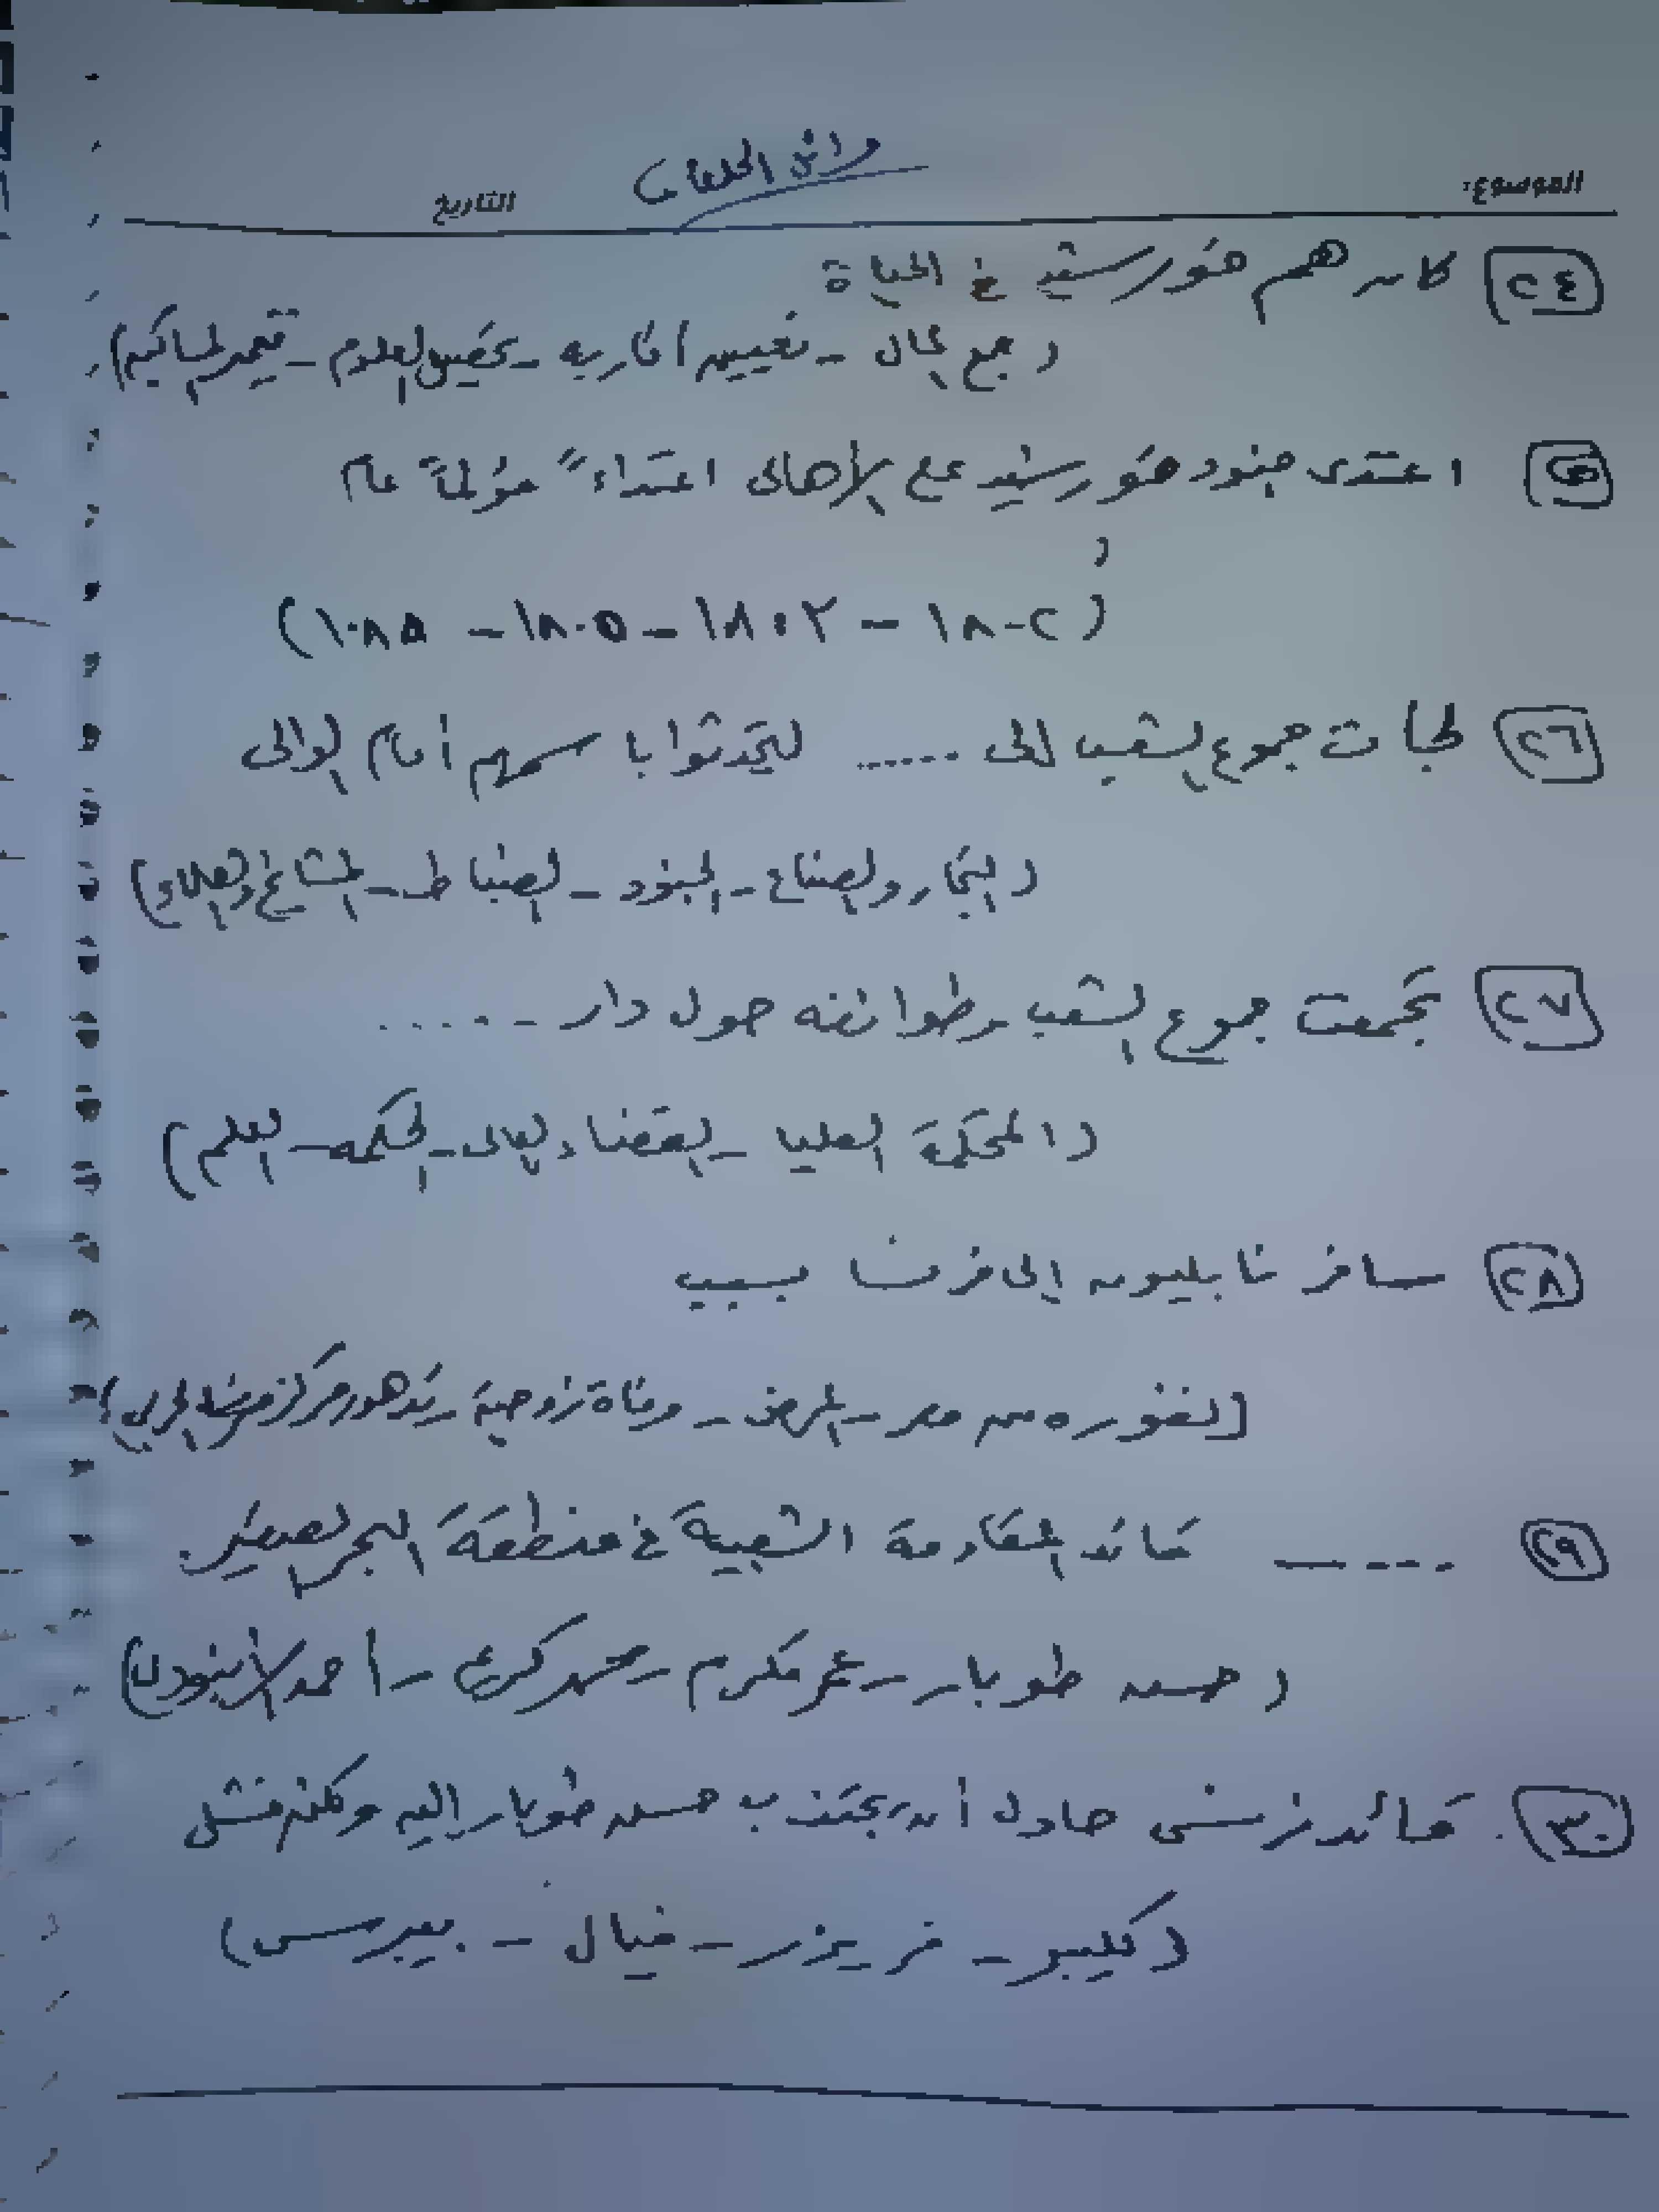 الموضوع:
التاريخ
٢٤ كان هم خورشيد في الحياة
(جمع المال - تعيين أقاربه - تحصيل العلوم -
٢٥ اعتدى جنود خورشيد على الأهالى اعتداءً مؤلماً عام
(١٨٠٢ - ١٨٠٣ - ١٨٠٥ - ١٠٨٥)
٢٦ لجأت جموع الشعب إلى ...... ليتحدثوا باسمهم أمام الوالى
(التجار والصناع - الجنود - الضباط - المشايخ والعلماء)
٢٧ تجمعت جموع الشعب وطوائفه حول دار ......
(المحكمة العليا - القضاء العالى - الحكمه - العلم)
٢٨ سافر نابليون إلى فرنسا بسبب
(نفوره من مصر - المرض - وفاة زوجته - تدهور مركز فرنسا الحربى)
٢٩ ...... قائد المقاومة الشعبية في منطقة البحر الصغير.
(حسن طوبار - عمر مكرم - محمد كريم - أحمد
٣٠. قائد فرنسى حاول أن يجتذب حسن طوبار إليه ولكنه فشل
(كليبر - فريزر - فيال - بيبرس)